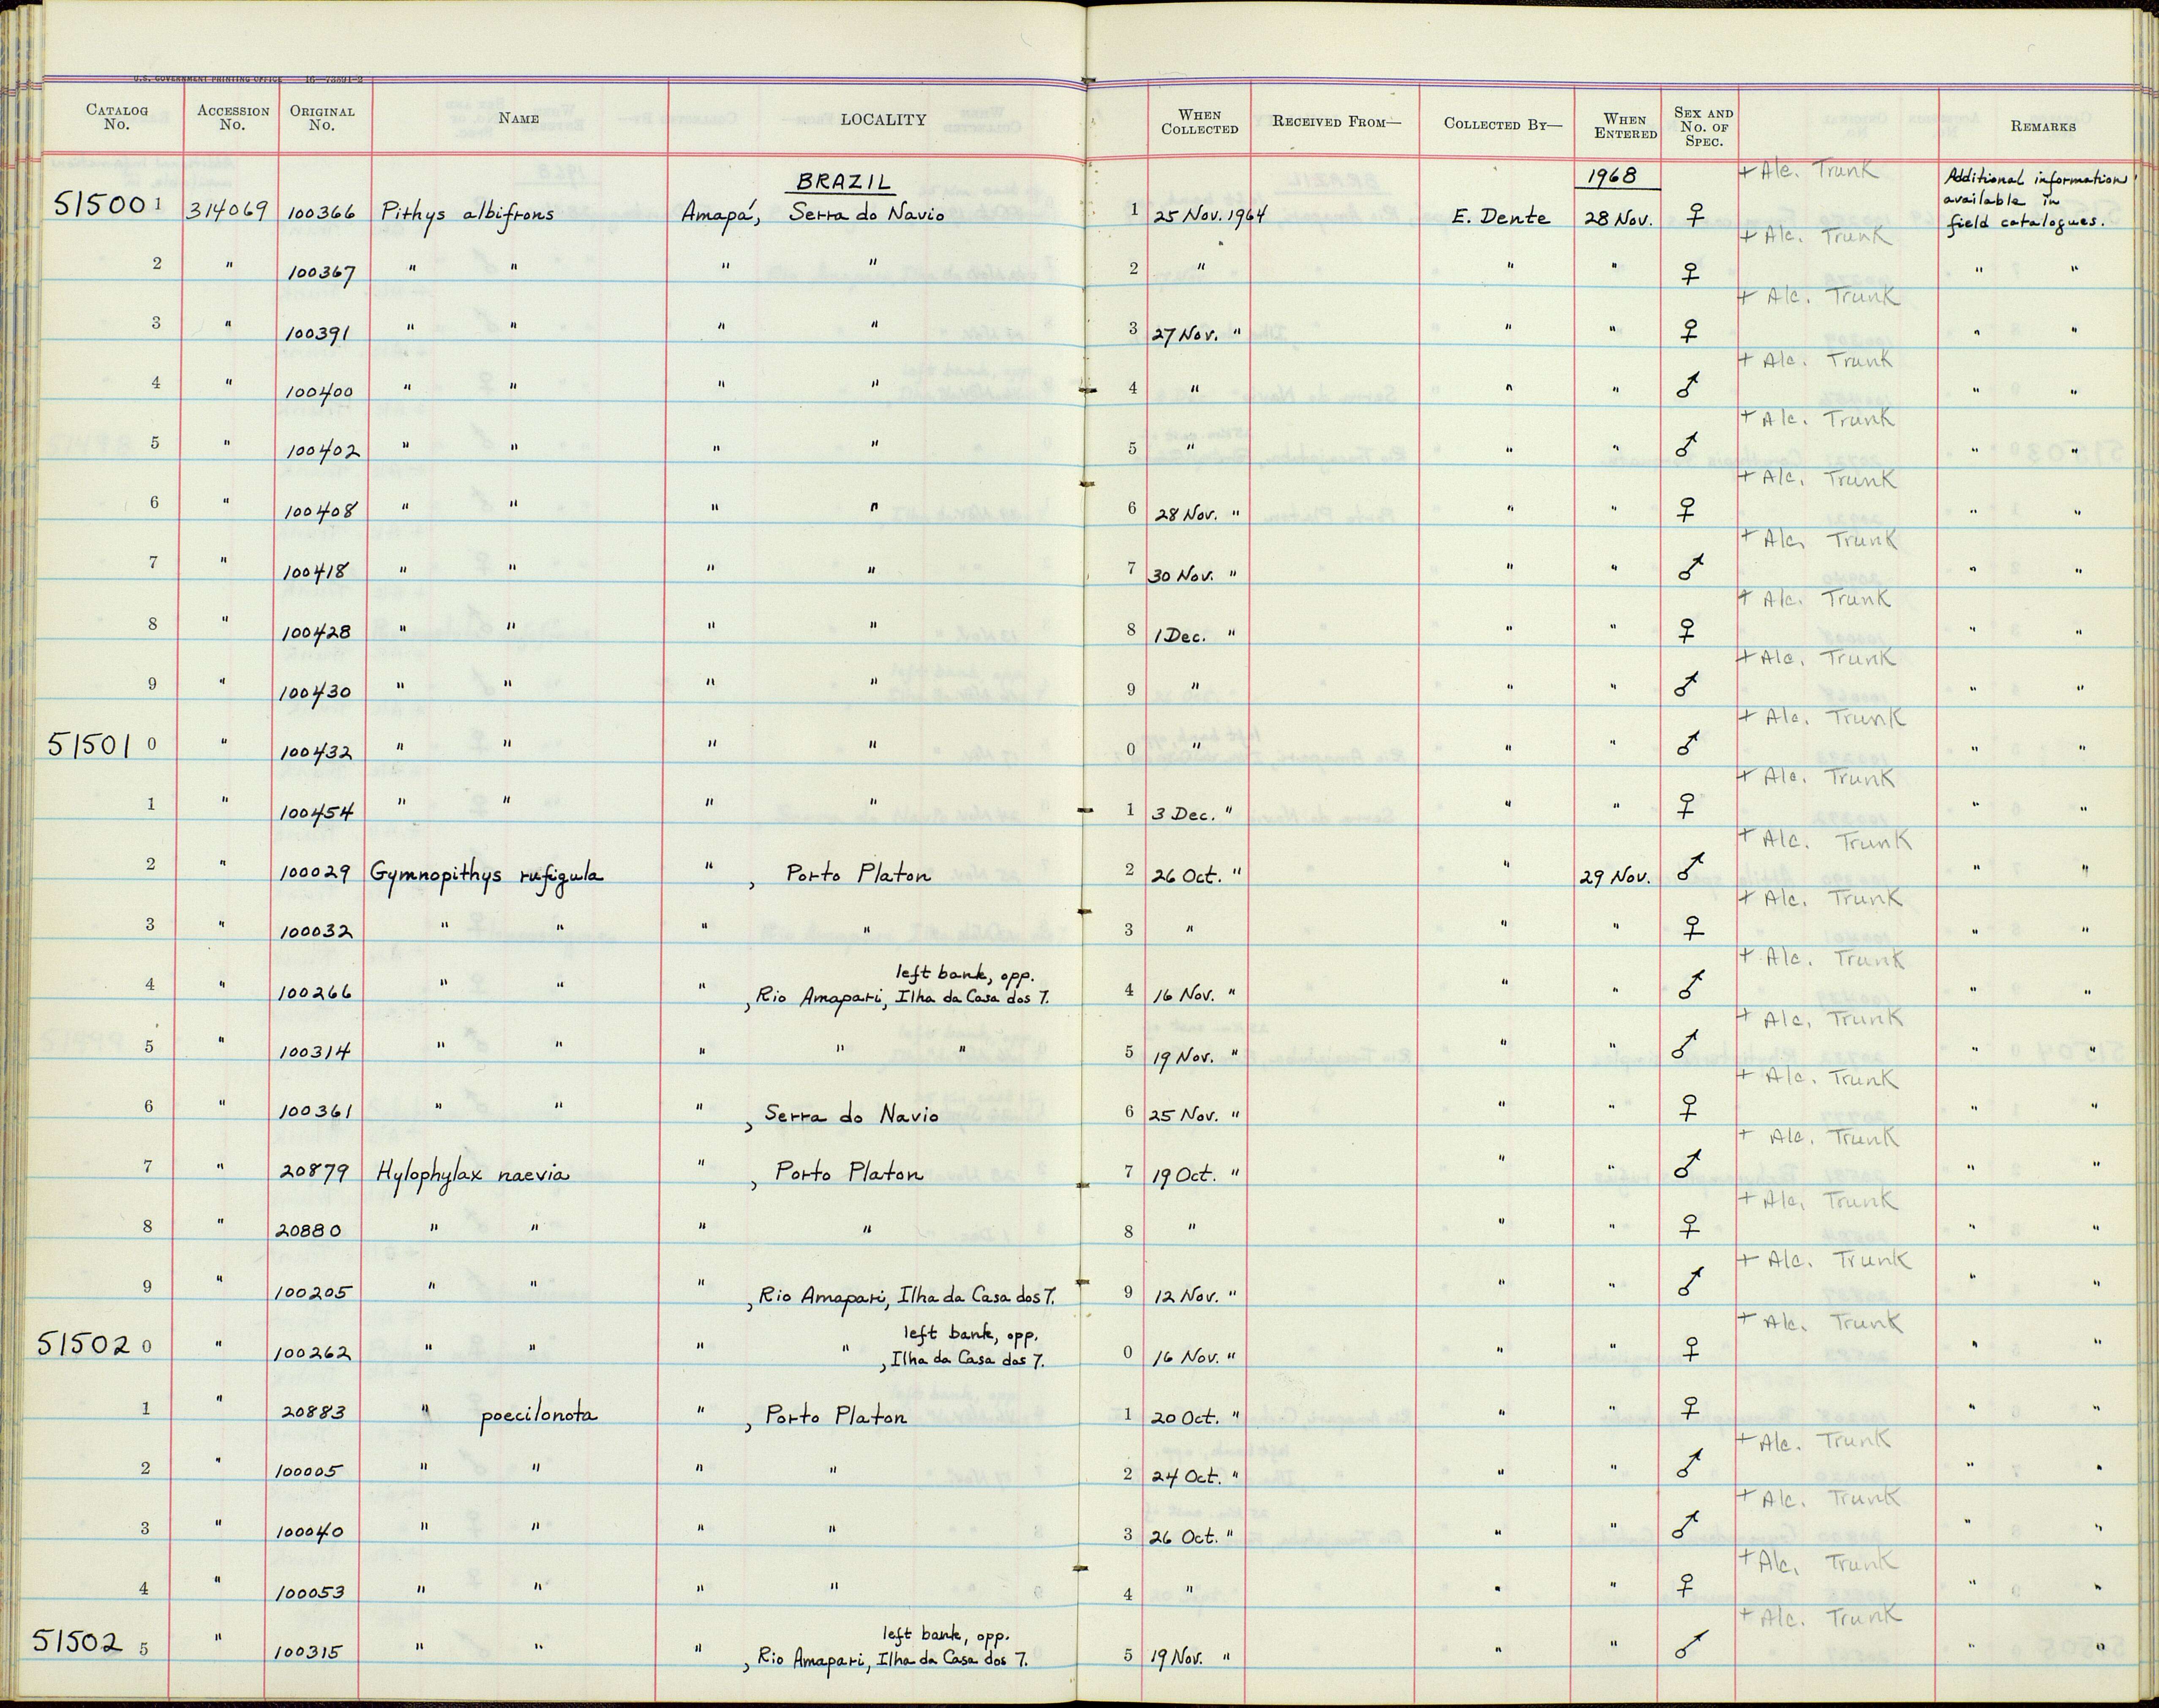 U.S. GOVERNMENT PRINTING OFFICE 16—73891-2
CATALOG No. ACCESSION No. ORIGINAL No. NAME LOCALITY WHEN COLLECTED RECEIVED FROM— COLLECTED BY— WHEN ENTERED SEX AND No. OF SPEC. REMARKS
BRAZIL 1968 + Alc. Trunk Additional information available in field catalogues.
515001 314069 100366 Pithys albifrons Amapá, Serra do Navio 1 25 Nov. 1964 E. Dente 28 Nov. ♀
2 " 100367 " " " " 2 " " " ♀ + Alc. Trunk " "
3 " 100391 " " " " 3 27 Nov. " " " ♀ + Alc. Trunk " "
4 " 100400 " " " " 4 " " " ♂ + Alc. Trunk " "
5 " 100402 " " " " 5 " " " ♂ + Alc. Trunk " "
6 " 100408 " " " " 6 28 Nov. " " " ♀ + Alc. Trunk " "
7 " 100418 " " " " 7 30 Nov. " " " ♂ + Alc. Trunk " "
8 " 100428 " " " " 8 1 Dec. " " " ♀ + Alc. Trunk " "
9 " 100430 " " " " 9 " " " ♂ + Alc. Trunk " "
515010 " 100432 " " " " 0 " " " ♂ + Alc. Trunk " "
1 " 100454 " " " " 1 3 Dec. " " " ♀ + Alc. Trunk " "
2 " 100029 Gymnopithys rufigula " , Porto Platon 2 26 Oct. " " 29 Nov. ♂ + Alc. Trunk " "
3 " 100032 " " " " 3 " " " ♀ + Alc. Trunk " "
4 " 100266 " " " , Rio Amapari, left bank, opp. Ilha da Casa dos 7. 4 16 Nov. " " " ♂ + Alc. Trunk " "
5 " 100314 " " " " " 5 19 Nov. " " " ♂ + Alc. Trunk " "
6 " 100361 " " " , Serra do Navio 6 25 Nov. " " " ♀ + Alc. Trunk " "
7 " 20879 Hylophylax naevia " , Porto Platon 7 19 Oct. " " " ♂ + Alc. Trunk " "
8 " 20880 " " " " 8 " " " ♀ + Alc. Trunk " "
9 " 100205 " " " , Rio Amapari, Ilha da Casa dos 7. 9 12 Nov. " " " ♂ + Alc. Trunk " "
515020 " 100262 " " " " left bank, opp. , Ilha da Casa dos 7. 0 16 Nov. " " " ♀ + Alc. Trunk " "
1 " 20883 " poecilonota " , Porto Platon 1 20 Oct. " " " ♀ " "
2 " 100005 " " " " 2 24 Oct. " " " ♂ + Alc. Trunk " "
3 " 100040 " " " " 3 26 Oct. " " " ♂ + Alc. Trunk " "
4 " 100053 " " " " 4 " " " ♀ + Alc. Trunk " "
515025 " 100315 " " " , Rio Amapari, left bank, opp. Ilha da Casa dos 7. 5 19 Nov. " " " ♂ + Alc. Trunk " "